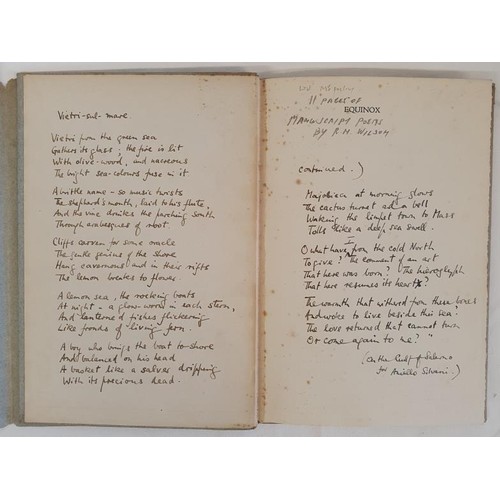 Vietri-sul-mare
Vietri from the green sea
Gathers its glass; the fire is lit
With olive-wood, and nacreous
The bright sea-colours fuse in it
A brittle name – so music twists
The shepherd's mouth, laid to his flute,
And the vine drinks the parching South
Through arabesques of root.
Cliffs carven for some oracle
The gentle genius of the shore
Hang cavernous and in their rifts
The lemon breathes to flower
A lemon sea, the rocking boats
At night – a glow-worm in each stern,
And lanterned fishes flickering
Like fronds of living fern.
A boy who brings the boat to shore
And balanced on his head
A basket like a salver dripping
With its precious dead.
11 PAGES OF
EQUINOX
MANUSCRIPT POEMS
BY R. N. WILSON
continued.)
at morning glows
The cactus turret and a bell
Waking the limpet town to Mass
Tolls like a deep sea swell.
O what have I from the cold North
To give? The comment of an art
That here was born? The hieroglyph
That here resumes its heart?
The warmth that withered from these bones
And woke to live beside this sea.
The love returned that cannot turn
Or come again to me? "
(On the Gulf of Salerno
for Aniello Silvani.)